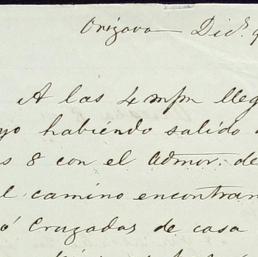 Orizava Dic.e 9
A las 4 mpm lleg
yo habiendo salido
s 8 con el Admor. de
l camino encontran
ó Cruzadas de casa